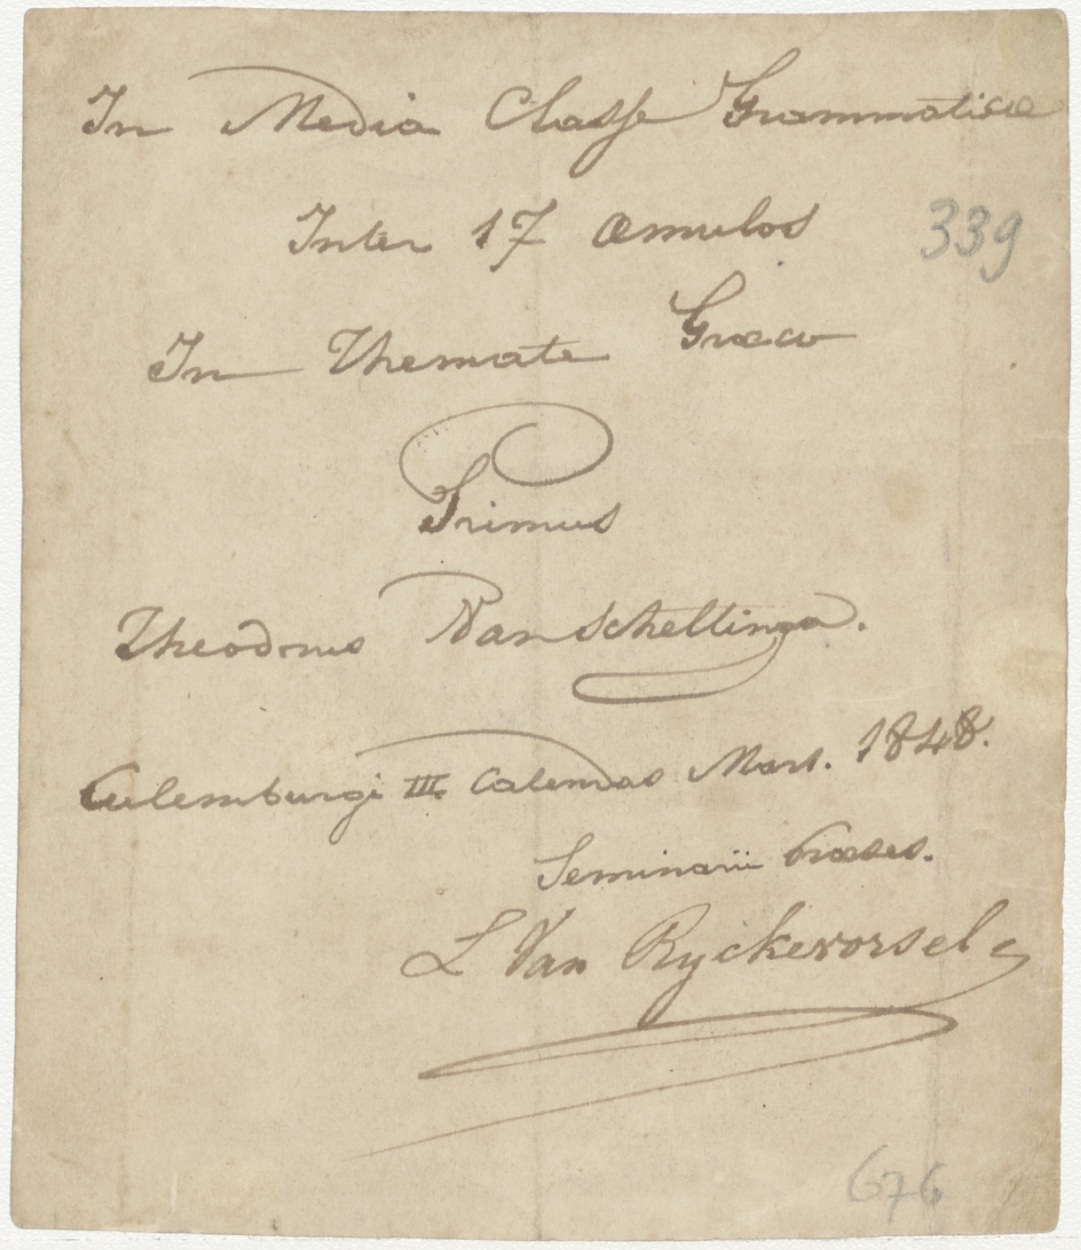 In Media Classe Grammaticæ
Inter 17 æmulos
339
In Themate Græco
Primus
Theodorus Van Scheltinga.
Culemburgi III Calendas Mart. 1848.
Seminarii Præses.
L Van Ryckevorsel
676